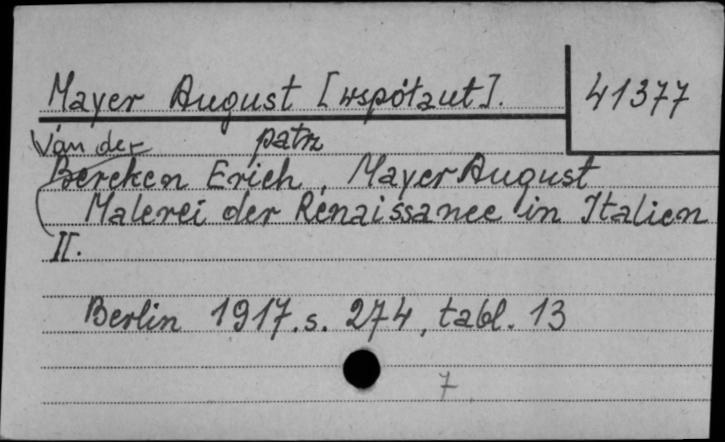 Mayer August [współaut]. 41377
patrz
Van der
Bercken Erich, Mayer August
Malerei der Renaissance in Italien
II.
Berlin 1917. s. 274, tabl. 13
7